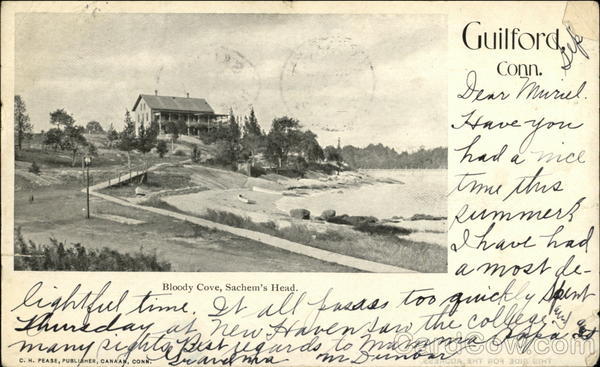 Guilford,
Conn.
Sep
Dear Muriel.
Have you
had a nice
time this
summer?
I have had
a most de-
Bloody Cove, Sachem's Head.
lightful time. It all passes too quickly Spent
Thursday at New Haven saw the college. and
many sights. Best regards to Mamma Papa
Grandma M Dunbar
C. H. PEASE, PUBLISHER, CANAAN, CONN.
CardCow.com
THIS SIDE FOR THE ADDRESS